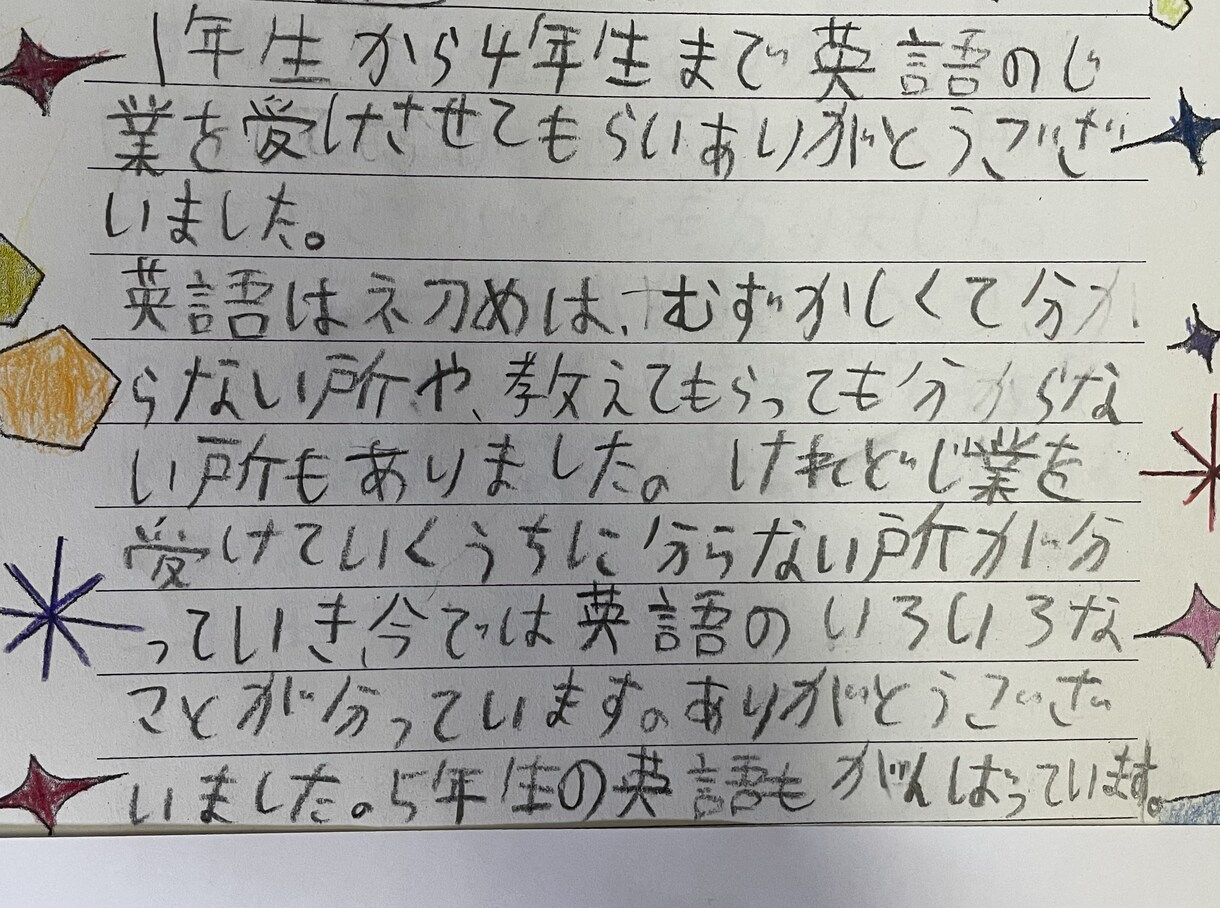 1年生から4年生まで英語のじ
業を受けさせてもらいありがとうござ
いました。
英語は初めは、むずかしくて分か
らない所や、教えてもらっても分からな
い所もありました。けれどじ業を
受けていくうちに分らない所が分
っていき、今では英語のいろいろな
ことが分っています。ありがとうござ
いました。5年生の英語もがんばっています。